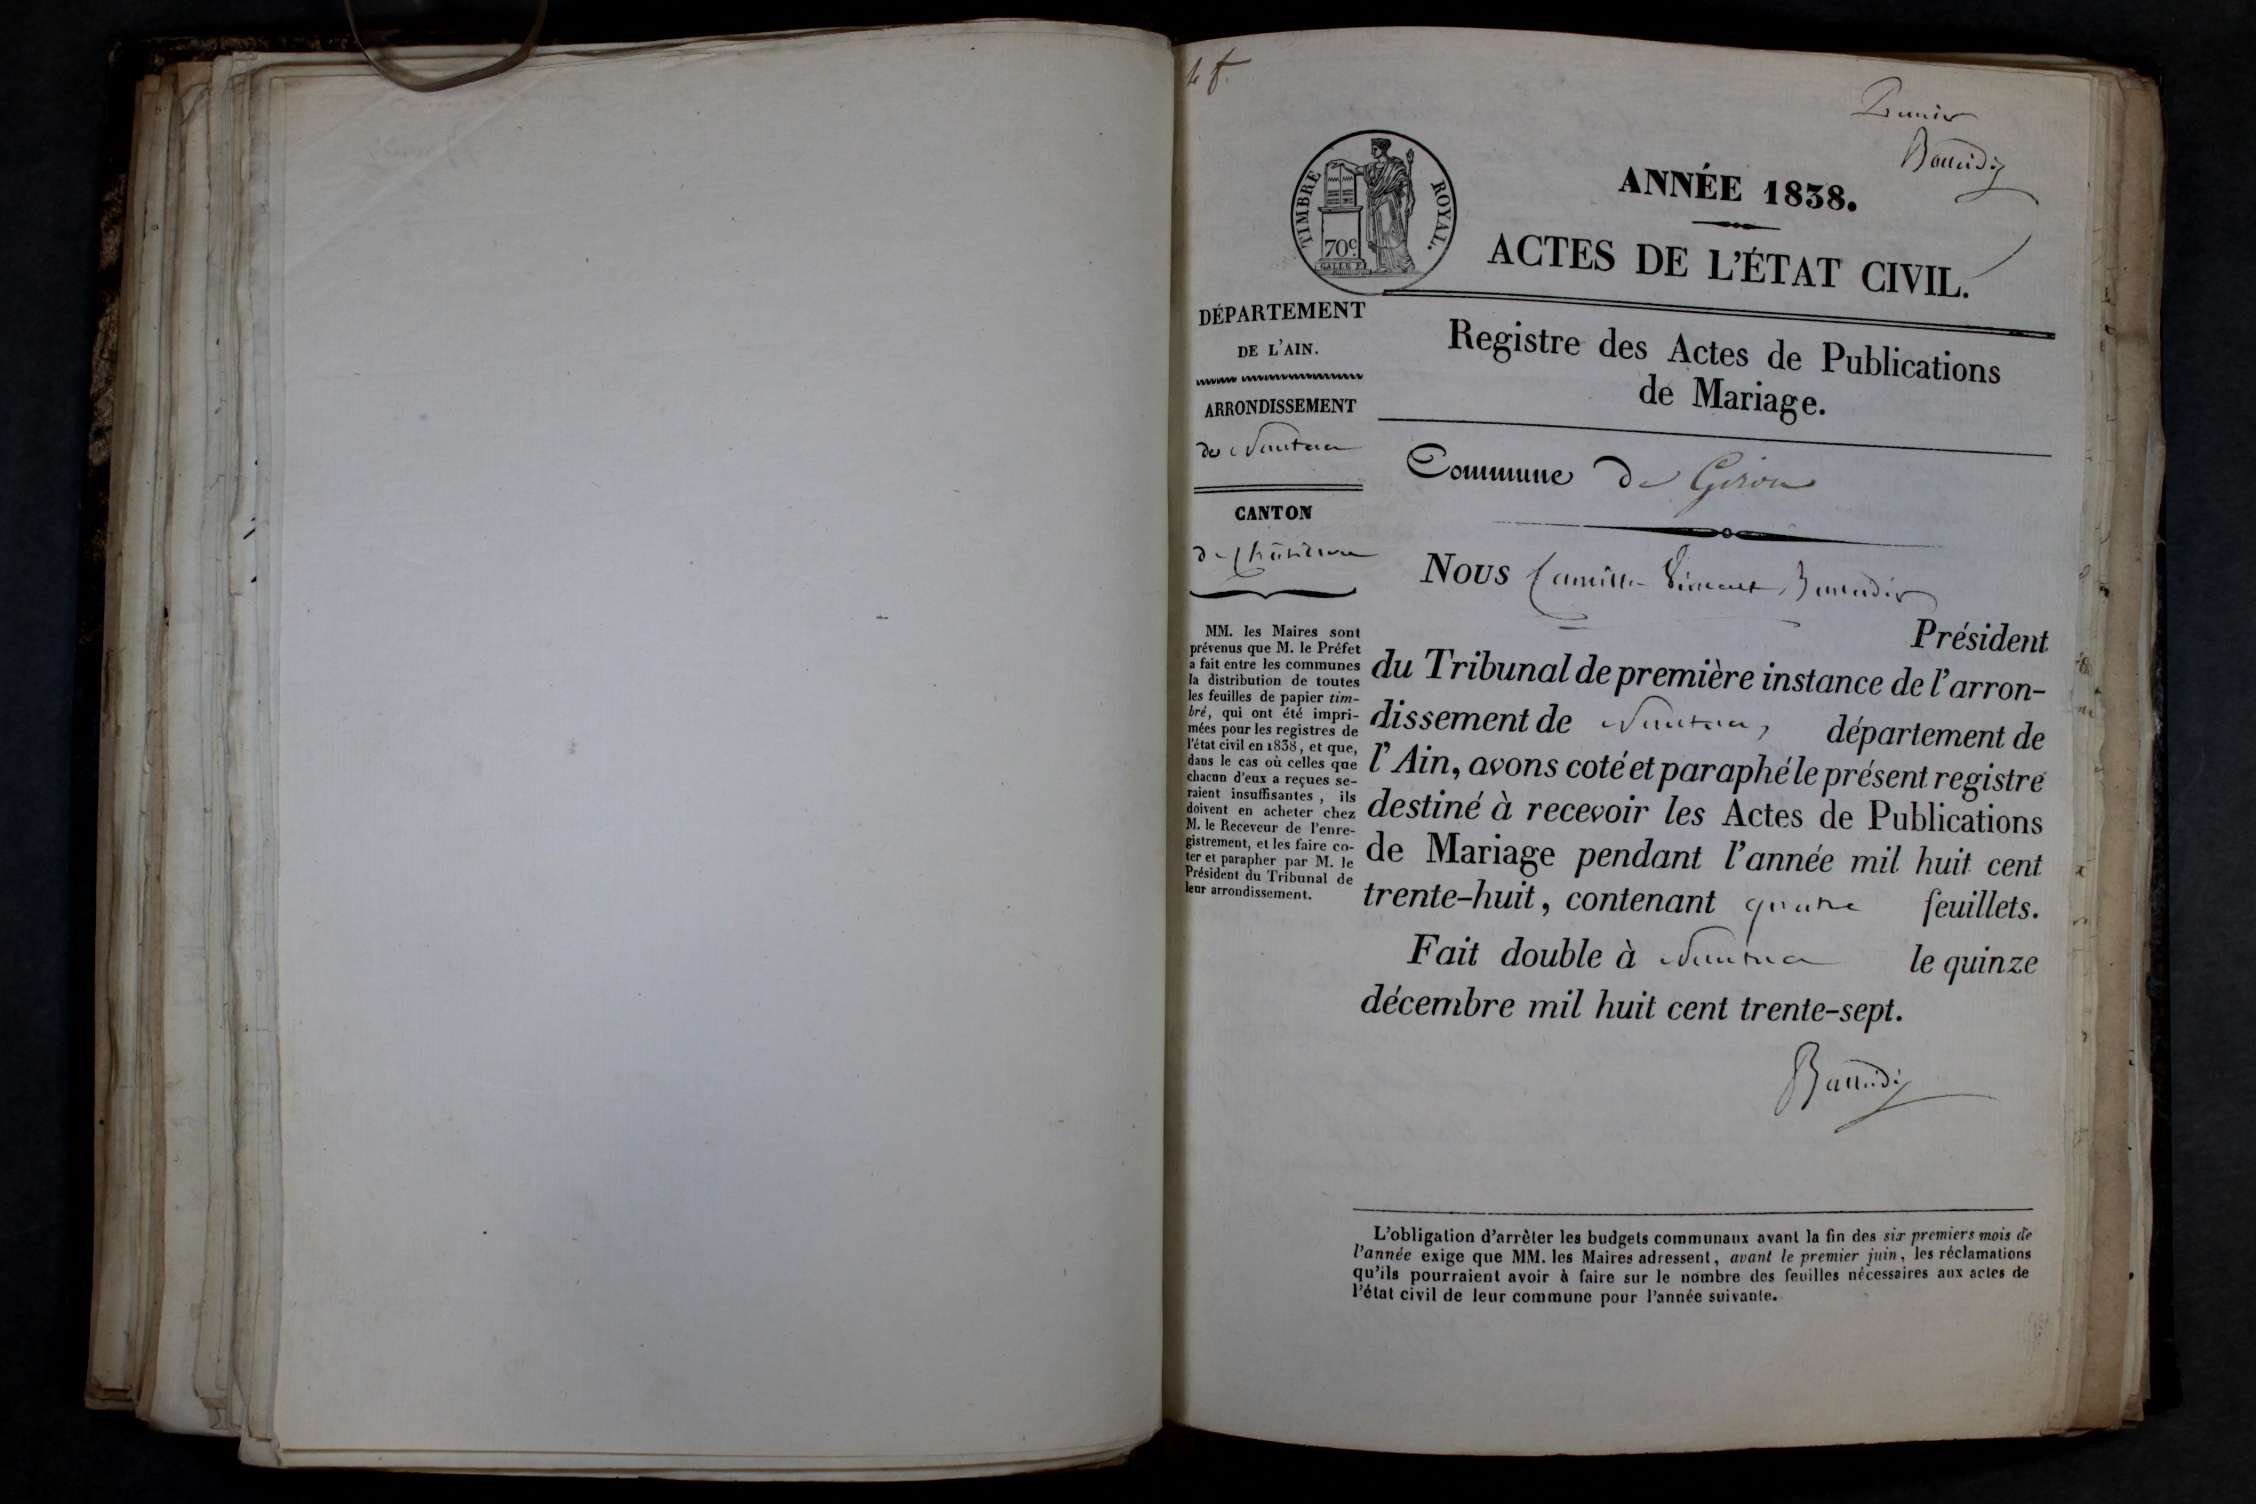 4 f.
Premier
Baudin
ANNÉE 1838.
TIMBRE ROYAL.
70c
GALLE F.
ACTES DE L'ÉTAT CIVIL.
DÉPARTEMENT
DE L'AIN.
ARRONDISSEMENT
de Nantua
CANTON
de Châtillon
MM. les Maires sont
prévenus que M. le Préfet
a fait entre les communes
la distribution de toutes
les feuilles de papier tim-
bré, qui ont été impri-
mées pour les registres de
l'état civil en 1838, et que,
dans le cas où celles que
chacun d'eux a reçues se-
raient insuffisantes, ils
doivent en acheter chez
M. le Receveur de l'enre-
gistrement, et les faire co-
ter et parapher par M. le
Président du Tribunal de
leur arrondissement.
Registre des Actes de Publications
de Mariage.
Commune de Giron
Nous Camille Vincent
Président
du Tribunal de première instance de l'arron-
dissement de Nantua, département de
l'Ain, avons coté et paraphé le présent registre
destiné à recevoir les Actes de Publications
de Mariage pendant l'année mil huit cent
trente-huit, contenant quatre feuillets.
Fait double à Nantua le quinze
décembre mil huit cent trente-sept.
L'obligation d'arrêter les budgets communaux avant la fin des six premiers mois de
l'année exige que MM. les Maires adressent, avant le premier juin, les réclamations
qu'ils pourraient avoir à faire sur le nombre des feuilles nécessaires aux actes de
l'état civil de leur commune pour l'année suivante.